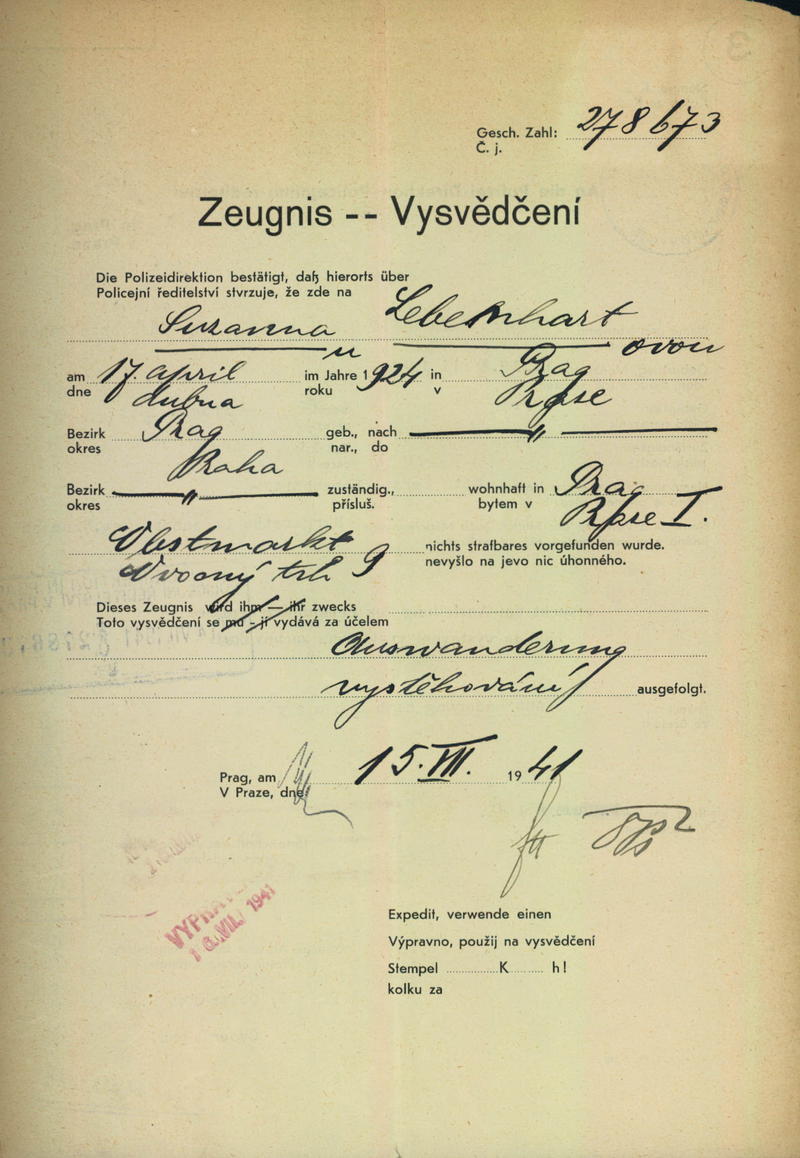 Gesch. Zahl: 278673
Č. j.
Zeugnis -- Vysvědčení
Die Polizeidirektion bestätigt, daß hierorts über
Policejní ředitelství stvrzuje, že zde na
Suzanna Lebenhart
u ovou
am 17. april im Jahre 1924 in Prag
dne dubna roku v Praze
Bezirk Prag geb., nach — " —
okres Praha nar., do
Bezirk — " — zuständig., wohnhaft in Prag
okres přísluš. bytem v Praze I.
Obstmarkt nichts strafbares vorgefunden wurde.
Ovocný trh 9 nevyšlo na jevo nic úhonného.
Dieses Zeugnis wird ihm — ihr zwecks
Toto vysvědčení se mu - jí vydává za účelem
Auswanderung
vystěhování ausgefolgt.
Prag, am 15. VII. 1941
V Praze, dne
VYPRA
1 6. VII. 1941
Expedit, verwende einen
Výpravno, použij na vysvědčení
Stempel K h!
kolku za